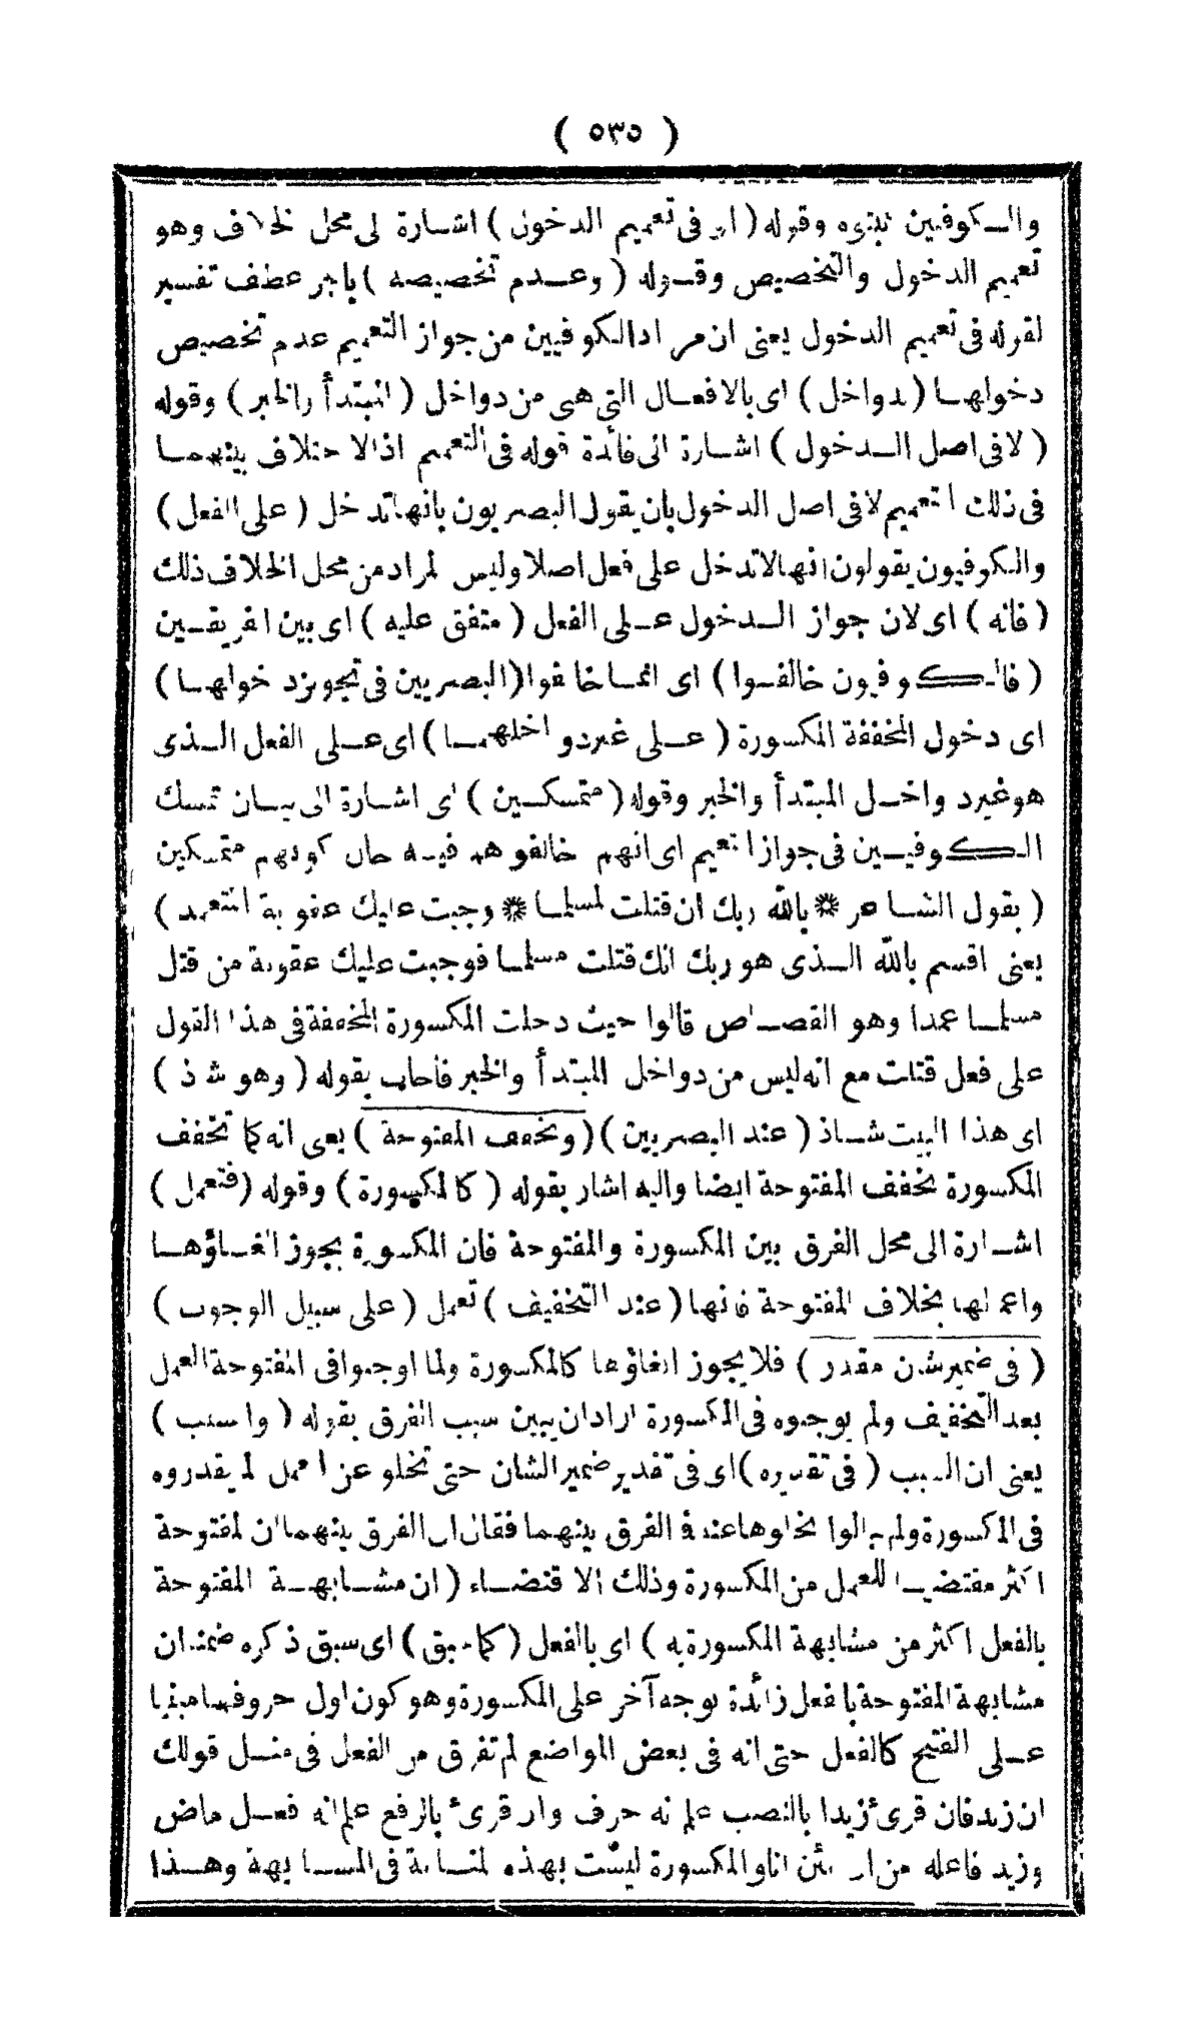 ( ٥٣٥ )
والكوفيين وقوله ( فى تعميم الدخول ) اشارة لى محل الخلاف وهو
تعميم الدخول والتخصيص وقوله ( وعدم تخصيصه ) بالجر عطف تفسير
لقوله فى تعميم الدخول يعنى ان مراد الكوفيين من جواز التعميم عدم تخصيص
دخولها ( بدواخل ) اى بالافعال التى هى من دواخل ( المبتدأ والخبر ) وقوله
( لا فى اصل الدخول ) اشارة الى فائدة قوله فى التعميم اذ الاختلاف بينهما
فى ذلك التعميم لا فى اصل الدخول بان يقول البصريون بانها تدخل ( على الفعل )
والكوفيون يقولون انها لا تدخل على فعل اصلا وليس المراد من محل الخلاف ذلك
( فانه ) اى لان جواز الدخول على الفعل ( متفق عليه ) اى بين الفريقين
( فالكوفيون خالفوا ) اى انما خالفوا ( البصريين فى تجويز دخولها )
اى دخول المخففة المكسورة ( على غير دواخلهما ) اى على الفعل الذى
هو غير دواخل المبتدأ والخبر وقوله ( متمسكين ) اى اشارة الى بيان تمسك
الكوفيين فى جواز التعميم اى انهم خالفوهم فيه حال كونهم متمسكين
( بقول الشاعر ۞ بالله ربك ان قتلت لمسلما ۞ وجبت عليك عقوبة المتعمد )
يعنى اقسم بالله الذى هو ربك انك قتلت مسلما فوجبت عليك عقوبة من قتل
مسلما عمدا وهو القصاص قالوا حيث دخلت المكسورة المخففة فى هذا القول
على فعل قتلت مع انه ليس من دواخل المبتدأ والخبر فاجاب بقوله ( وهو شاذ )
اى هذا البيت شاذ ( عند البصريين ) ( وتخفف المفتوحة ) يعنى انه كما تخفف
المكسورة تخفف المفتوحة ايضا واليه اشار بقوله ( كالمكسورة ) وقوله ( فتعمل )
اشارة الى محل الفرق بين المكسورة والمفتوحة فان المكسورة يجوز الغاؤها
واعمالها بخلاف المفتوحة فانها ( عند التخفيف ) تعمل ( على سبيل الوجوب )
( فى ضمير شأن مقدر ) فلا يجوز الغاؤها كالمكسورة ولما اوجبوا فى المفتوحة العمل
بعد التخفيف ولم يوجبوه فى المكسورة اراد ان يبين سبب الفرق بقوله ( والسبب )
يعنى ان السبب ( فى تقديره ) اى فى تقدير ضمير الشان حتى تخلو عن العمل لم يقدروه
فى المكسورة ولم يبالوا بخلوها عنه الفرق بينهما فقال ان الفرق بينهما ان المفتوحة
اكثر مقتضيا للعمل من المكسورة وذلك الاقتضاء ( ان مشابهة المفتوحة
بالفعل اكثر من مشابهة المكسورة به ) اى بالفعل ( كما سبق ) اى سبق ذكره ضمن ان
مشابهة المفتوحة بالفعل زائدة بوجه آخر على المكسورة وهو كون اول حروفها مبنيا
على الفتح كالفعل حتى انه فى بعض المواضع لم تفرق من الفعل فى مثل قولك
ان زيد فان قرئ زيدا بالنصب علم انه حرف وان قرئ بالرفع علم انه فعل ماض
وزيد فاعله من ان يئن انا والمكسورة ليست بهذه المثابة فى المشابهة وهذا